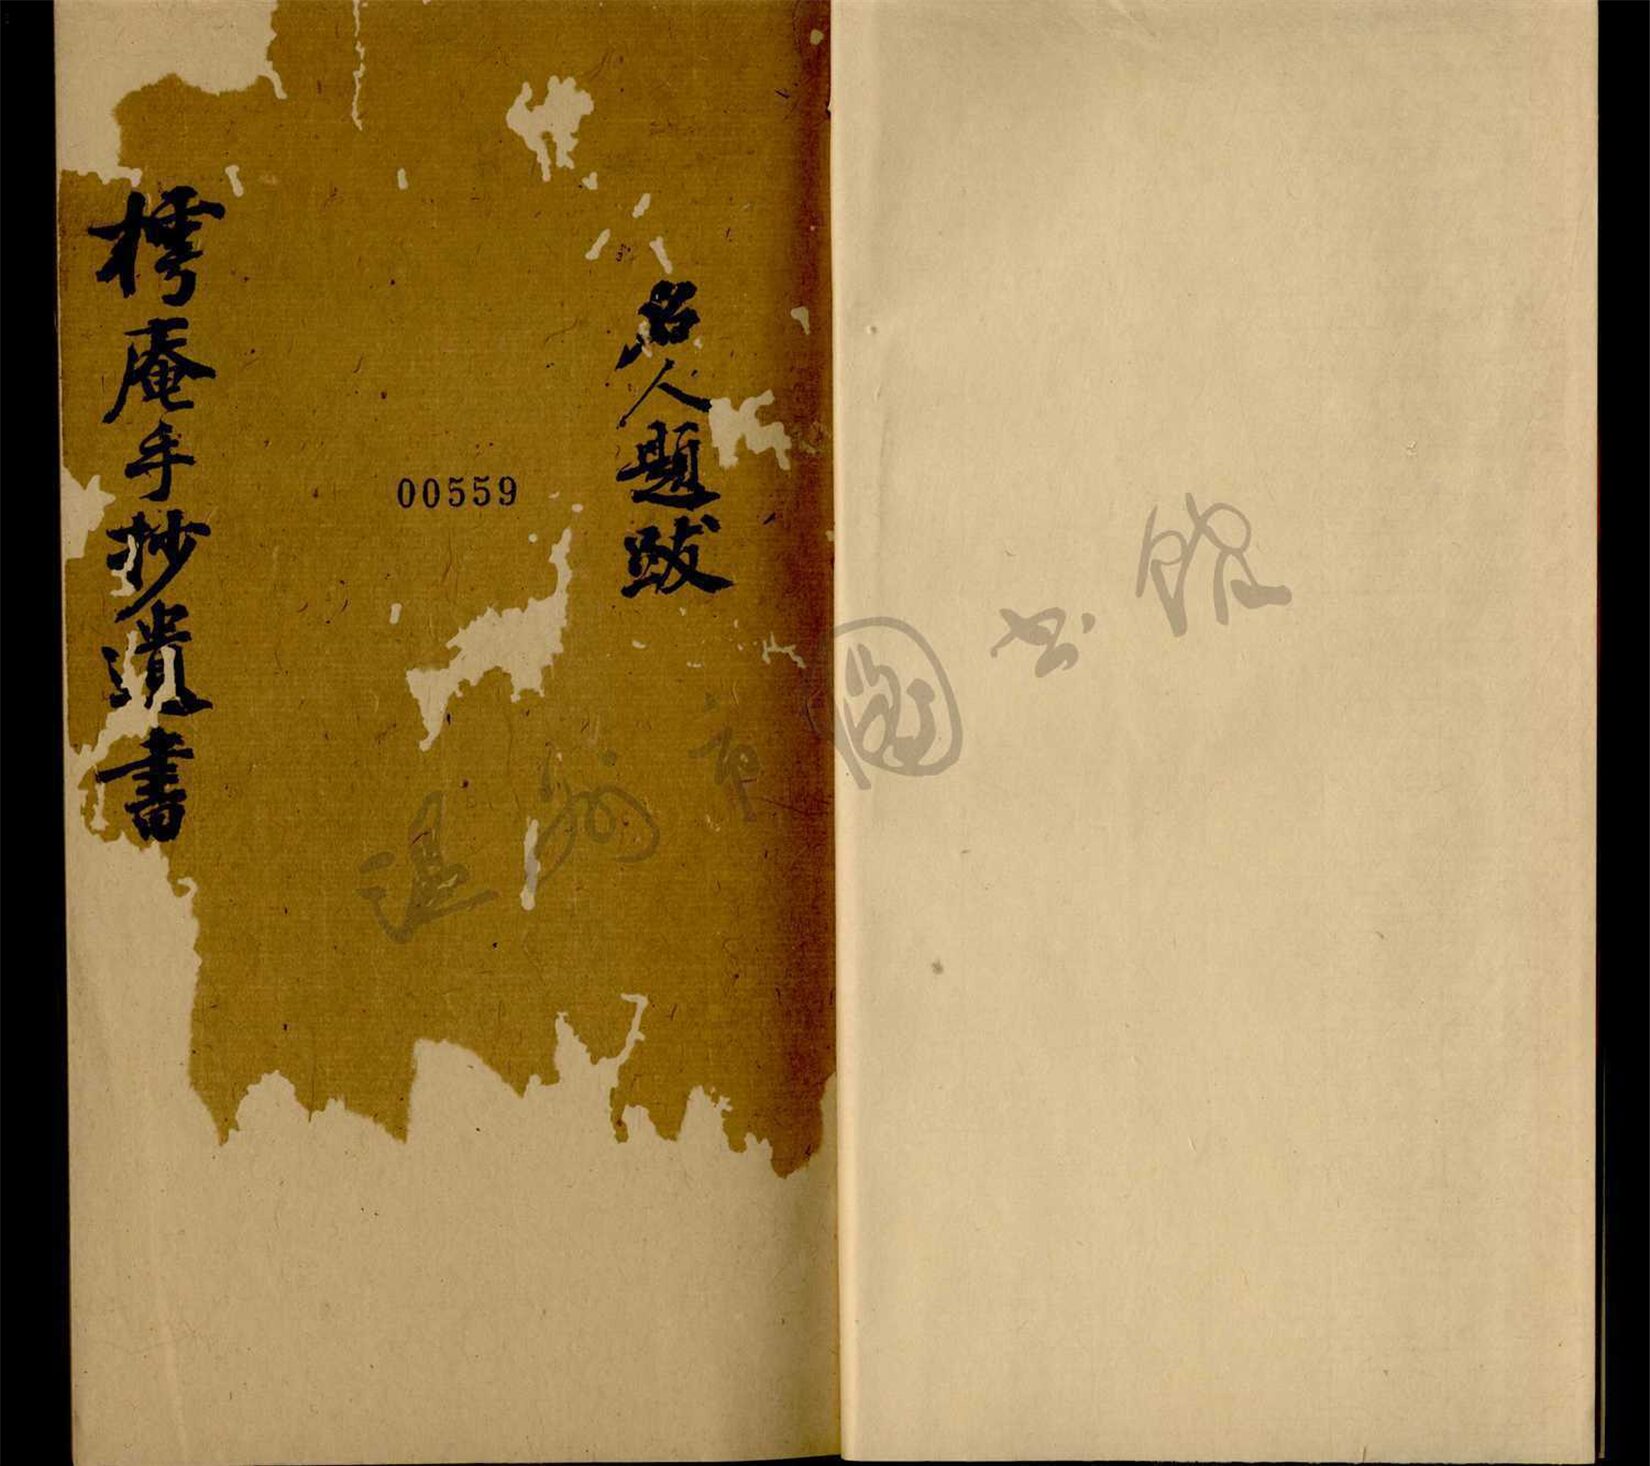 名人題跋
00559
樗庵手抄遺書
温州市图书馆